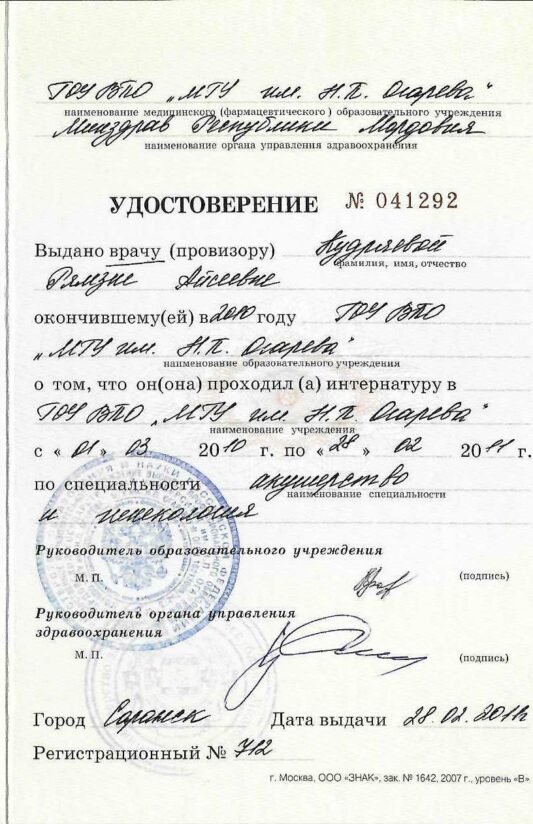 ГОУ ВПО „МГУ им. Н.П. Огарева"
наименование медицинского (фармацевтического) образовательного учреждения
Минздрав Республики Мордовия
наименование органа управления здравоохранения
УДОСТОВЕРЕНИЕ № 041292
Выдано врачу (провизору) Кудряевой
фамилия, имя, отчество
Рямзие Айсеевне
окончившему(ей) в 2010 году ГОУ ВПО
„МГУ им. Н.П. Огарева"
наименование образовательного учреждения
о том, что он(она) проходил (а) интернатуру в
ГОУ ВПО „МГУ им. Н.П. Огарева"
наименование учреждения
с « 01 » 03 2010 г. по « 28 » 02 2011 г.
по специальности акушерство
наименование специальности
и гинекология
Руководитель образовательного учреждения
М. П. (подпись)
Руководитель органа управления
здравоохранения
М. П. (подпись)
Город Саранск Дата выдачи 28.02.2011г
Регистрационный № 712
г. Москва, ООО «ЗНАК», зак. № 1642, 2007 г., уровень «В»